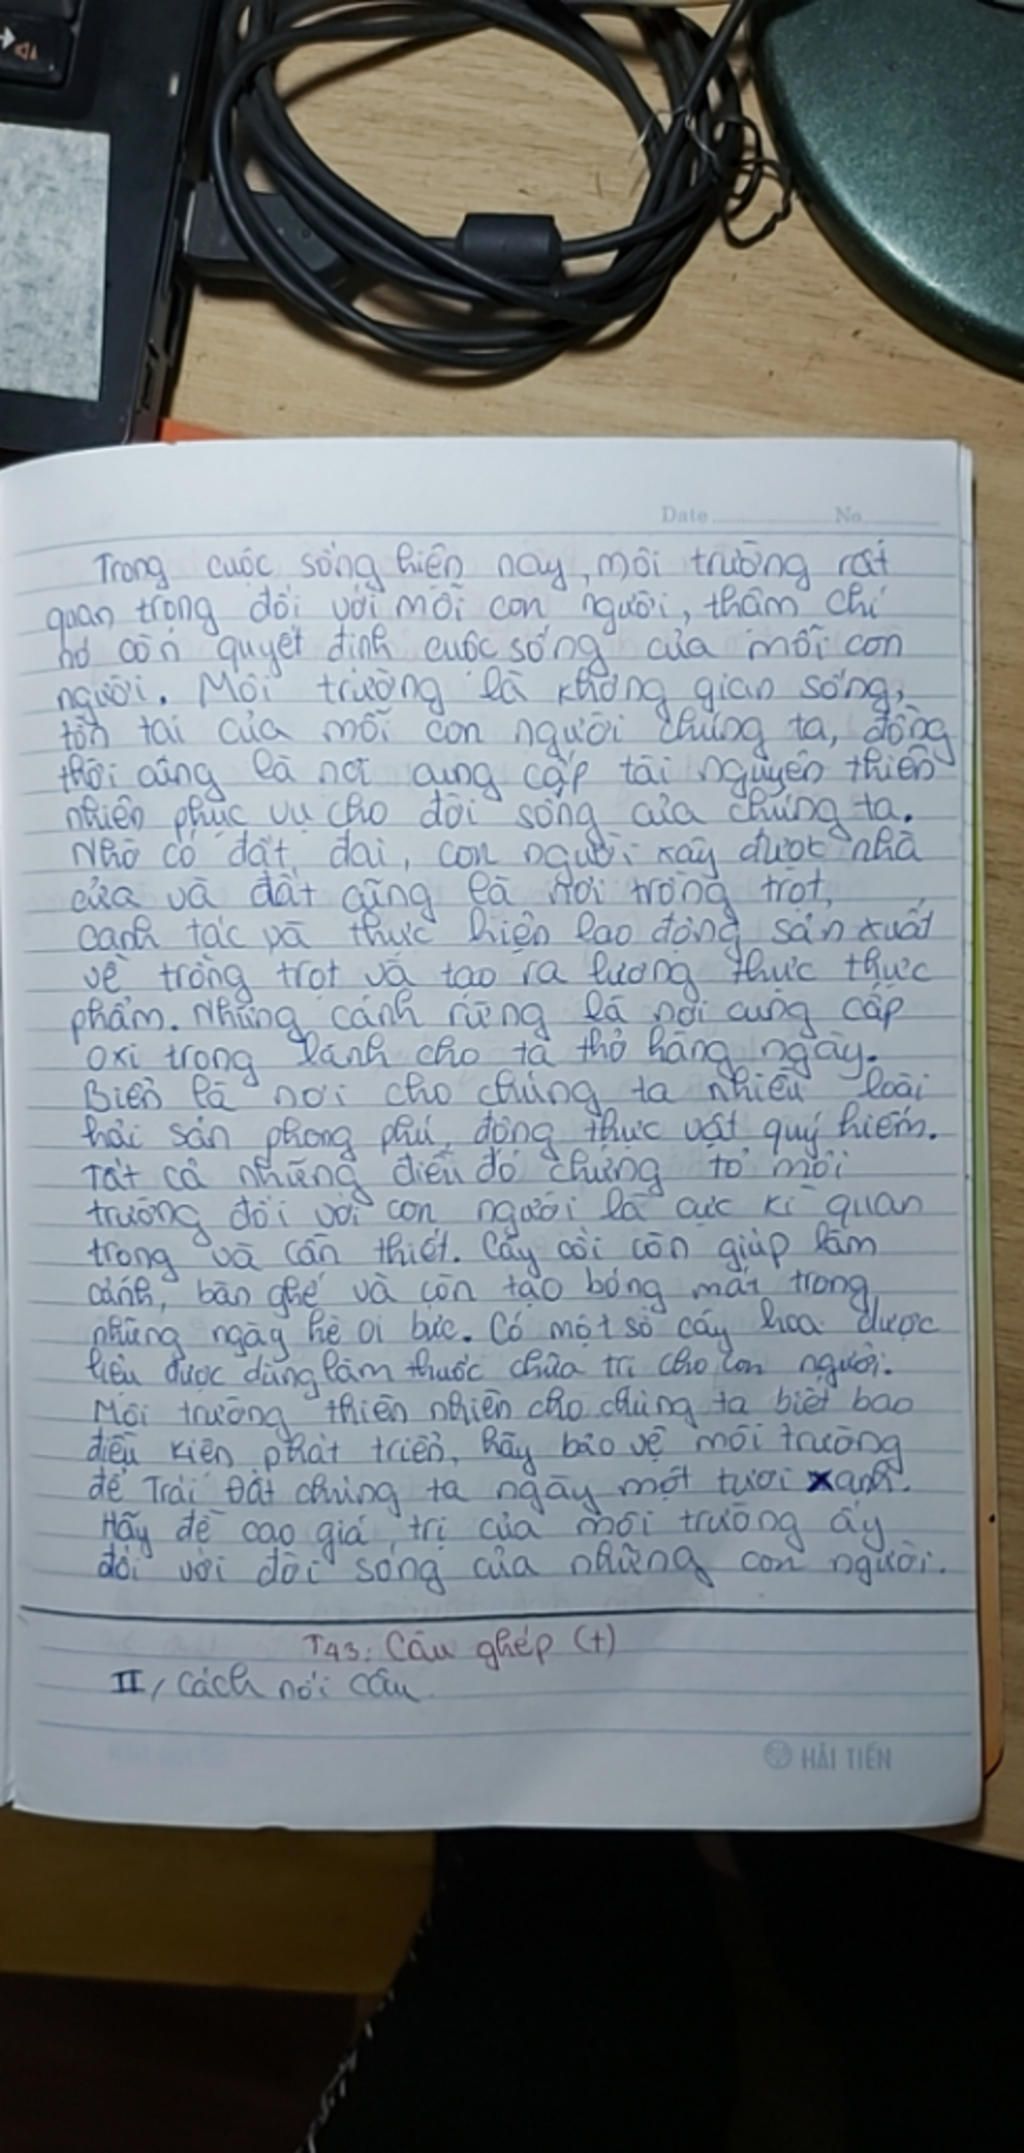 Date No
Trong cuộc sống hiện nay, môi trường rất
quan trọng đối với mỗi con người, thậm chí
nó còn quyết định cuộc sống của mỗi con
người. Môi trường là không gian sống,
tồn tại của mỗi con người chúng ta, đồng
thời cũng là nơi cung cấp tài nguyên thiên
nhiên phục vụ cho đời sống của chúng ta.
Nhờ có đất đai, con người xây được nhà
cửa và đất cũng là nơi trồng trọt,
canh tác và thực hiện lao động sản xuất
về trồng trọt và tạo ra lương thực thực
phẩm. Những cánh rừng là nơi cung cấp
oxi trong lành cho ta thở hàng ngày.
Biển là nơi cho chúng ta nhiều loài
hải sản phong phú, động thực vật quý hiếm.
Tất cả những điều đó chứng tỏ môi
trường đối với con người là cực kì quan
trọng và cần thiết. Cây cối còn giúp làm
cảnh, bàn ghế và còn tạo bóng mát trong
những ngày hè oi bức. Có một số cây hoa dược
liệu được dùng làm thuốc chữa trị cho con người.
Môi trường thiên nhiên cho chúng ta biết bao
điều kiện phát triển, hãy bảo vệ môi trường
để Trái Đất chúng ta ngày một tươi xanh.
Hãy đề cao giá trị của môi trường ấy
đối với đời sống của những con người.
T43: Câu ghép (t)
II, Cách nối câu
HẢI TIẾN